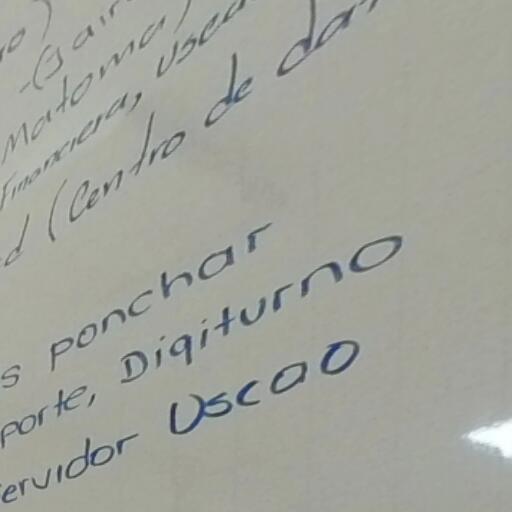 Matoma)
Financiera, usca
(Centro de dat
s ponchar
porte, Digiturno
ervidor Uscao